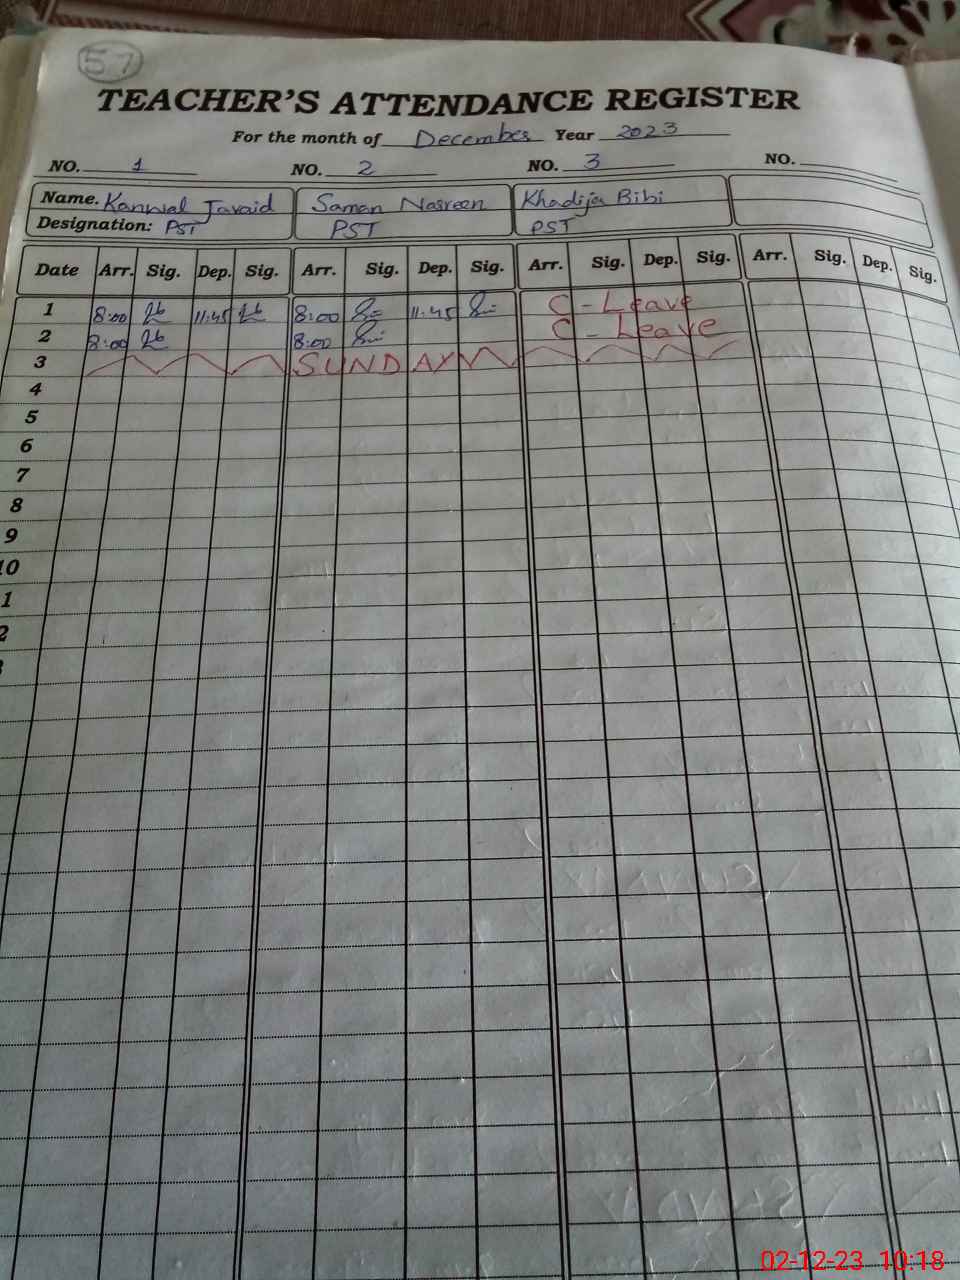 57
TEACHER'S ATTENDANCE REGISTER
For the month of December Year 2023
NO. 1 NO. 2 NO. 3 NO.
Name. Kanwal Javaid Saman Nasreen Khadija Bibi
Designation: PST PST PST
Date Arr. Sig. Dep. Sig. Arr. Sig. Dep. Sig. Arr. Sig. Dep. Sig. Arr. Sig. Dep. Sig.
1 8:00 11:45 8:00 11:45 C - Leave
2 8:00 8:00 C - Leave
3 SUNDAY
4
5
6
7
8
9
10
1
2
02-12-23 10:18